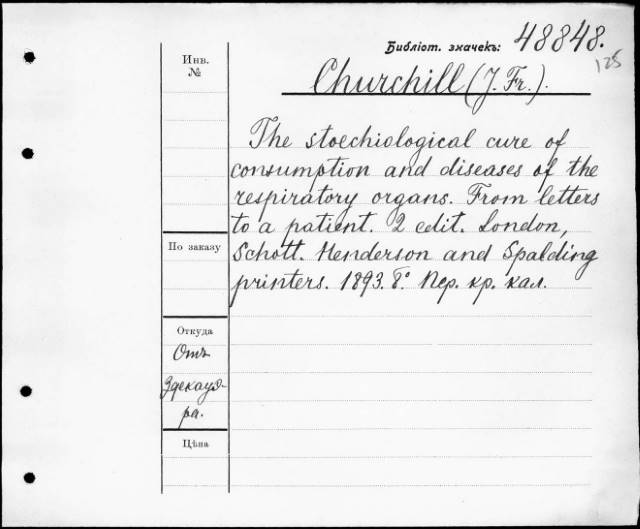 Библіот. значекъ: 48848.
125
Инв.
№
Churchill (J. Fr.).
The stoechiological cure of
consumption and diseases of the
respiratory organs. From letters
to a patient. 2 edit. London,
Schott. Henderson and Spalding
printers. 1893. 8° Пер. кр. кал.
По заказу
Откуда
Отъ
Здекауэ-
ра.
Цѣна